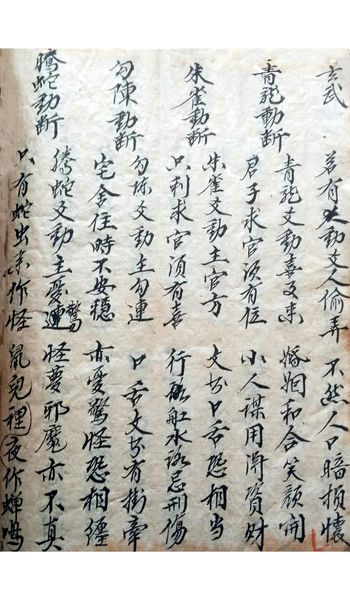 玄武
若有动爻人偷弄 不然人口暗損懷
青龍動断
青龍爻動喜又來 婚姻和合笑顔開
君子求官須有位 小人謀用得資財
朱雀動断
朱雀爻動主官方 文書口舌恐相当
只利求官須有喜 行路船水路忌刑傷
勾陳動断
勾陳爻動主勾連 口舌文書有樹牽
宅舍住時不安穏 亦憂驚怪恐相纏
騰蛇動断
騰蛇爻動主憂驚 怪夢邪魔亦不真
只有蛇虫來作怪 鼠兒裡夜作蟬鳴